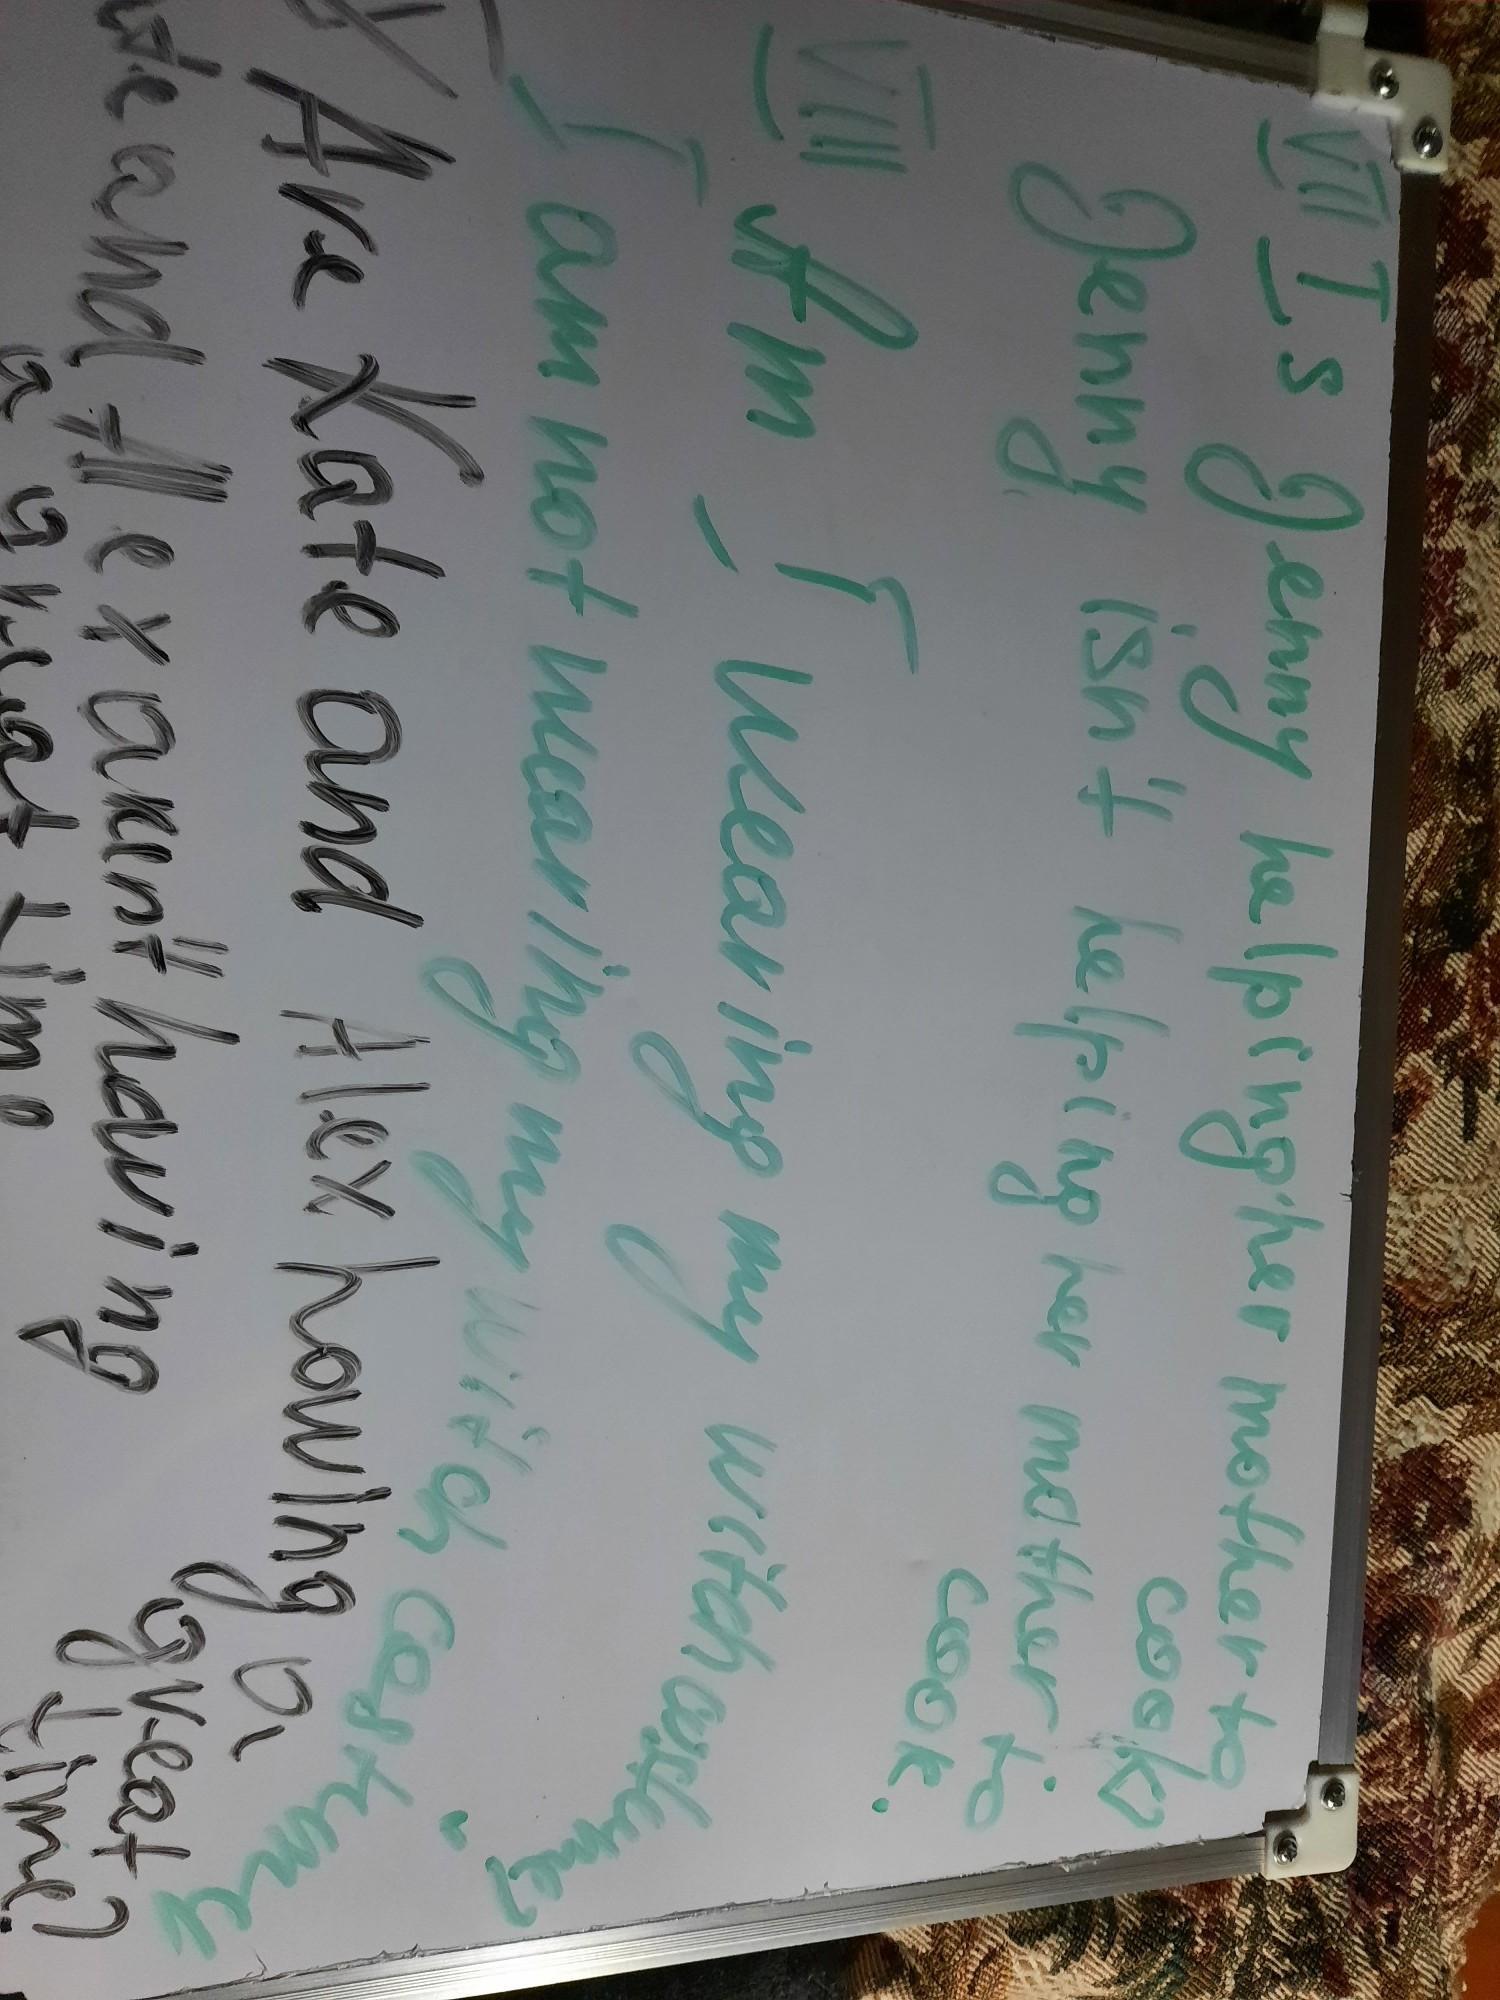 VII Is Jenny helping her mother to
cook?
Jenny isn't helping her mother to
cook.
VIII Am I wearing my witch costume?
I am not wearing my witch costume.
Are Kate and Alex having a
great time?
and Alex aren't having
a great time